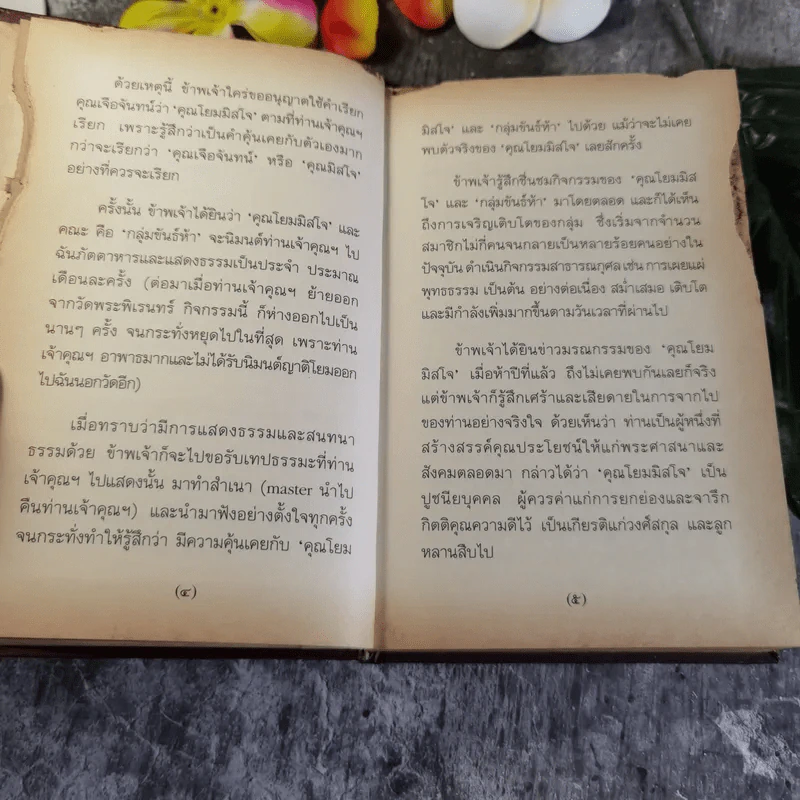 ด้วยเหตุนี้ ข้าพเจ้าใคร่ขออนุญาตใช้คำเรียก
คุณเจือจันทน์ว่า ‘คุณโยมมิสโจ’ ตามที่ท่านเจ้าคุณฯ
เรียก เพราะรู้สึกว่าเป็นคำคุ้นเคยกับตัวเองมาก
กว่าจะเรียกว่า ‘คุณเจือจันทน์’ หรือ ‘คุณมิสโจ’
อย่างที่ควรจะเรียก
ครั้งนั้น ข้าพเจ้าได้ยินว่า ‘คุณโยมมิสโจ’ และ
คณะ คือ ‘กลุ่มขันธ์ห้า’ จะนิมนต์ท่านเจ้าคุณฯ ไป
ฉันภัตตาหารและแสดงธรรมเป็นประจำ ประมาณ
เดือนละครั้ง (ต่อมาเมื่อท่านเจ้าคุณฯ ย้ายออก
จากวัดพระพิเรนทร์ กิจกรรมนี้ ก็ห่างออกไปเป็น
นานๆ ครั้ง จนกระทั่งหยุดไปในที่สุด เพราะท่าน
เจ้าคุณฯ อาพาธมากและไม่ได้รับนิมนต์ญาติโยมออก
ไปฉันนอกวัดอีก)
เมื่อทราบว่ามีการแสดงธรรมและสนทนา
ธรรมด้วย ข้าพเจ้าก็จะไปขอรับเทปธรรมะที่ท่าน
เจ้าคุณฯ ไปแสดงนั้น มาทำสำเนา (master นำไป
คืนท่านเจ้าคุณฯ) และนำมาฟังอย่างตั้งใจทุกครั้ง
จนกระทั่งทำให้รู้สึกว่า มีความคุ้นเคยกับ ‘คุณโยม
(๔)
มิสโจ’ และ ‘กลุ่มขันธ์ห้า’ ไปด้วย แม้ว่าจะไม่เคย
พบตัวจริงของ ‘คุณโยมมิสโจ’ เลยสักครั้ง
ข้าพเจ้ารู้สึกชื่นชมกิจกรรมของ ‘คุณโยมมิส
โจ’ และ ‘กลุ่มขันธ์ห้า’ มาโดยตลอด และก็ได้เห็น
ถึงการเจริญเติบโตของกลุ่ม ซึ่งเริ่มจากจำนวน
สมาชิกไม่กี่คนจนกลายเป็นหลายร้อยคนอย่างใน
ปัจจุบัน ดำเนินกิจกรรมสาธารณกุศล เช่น การเผยแผ่
พุทธธรรม เป็นต้น อย่างต่อเนื่อง สม่ำเสมอ เติบโต
และมีกำลังเพิ่มมากขึ้นตามวันเวลาที่ผ่านไป
ข้าพเจ้าได้ยินข่าวมรณกรรมของ ‘คุณโยม
มิสโจ’ เมื่อห้าปีที่แล้ว ถึงไม่เคยพบกันเลยก็จริง
แต่ข้าพเจ้าก็รู้สึกเศร้าและเสียดายในการจากไป
ของท่านอย่างจริงใจ ด้วยเห็นว่า ท่านเป็นผู้หนึ่งที่
สร้างสรรค์คุณประโยชน์ให้แก่พระศาสนาและ
สังคมตลอดมา กล่าวได้ว่า ‘คุณโยมมิสโจ’ เป็น
ปูชนียบุคคล ผู้ควรค่าแก่การยกย่องและจารึก
กิตติคุณความดีไว้ เป็นเกียรติแก่วงศ์สกุล และลูก
หลานสืบไป
(๕)